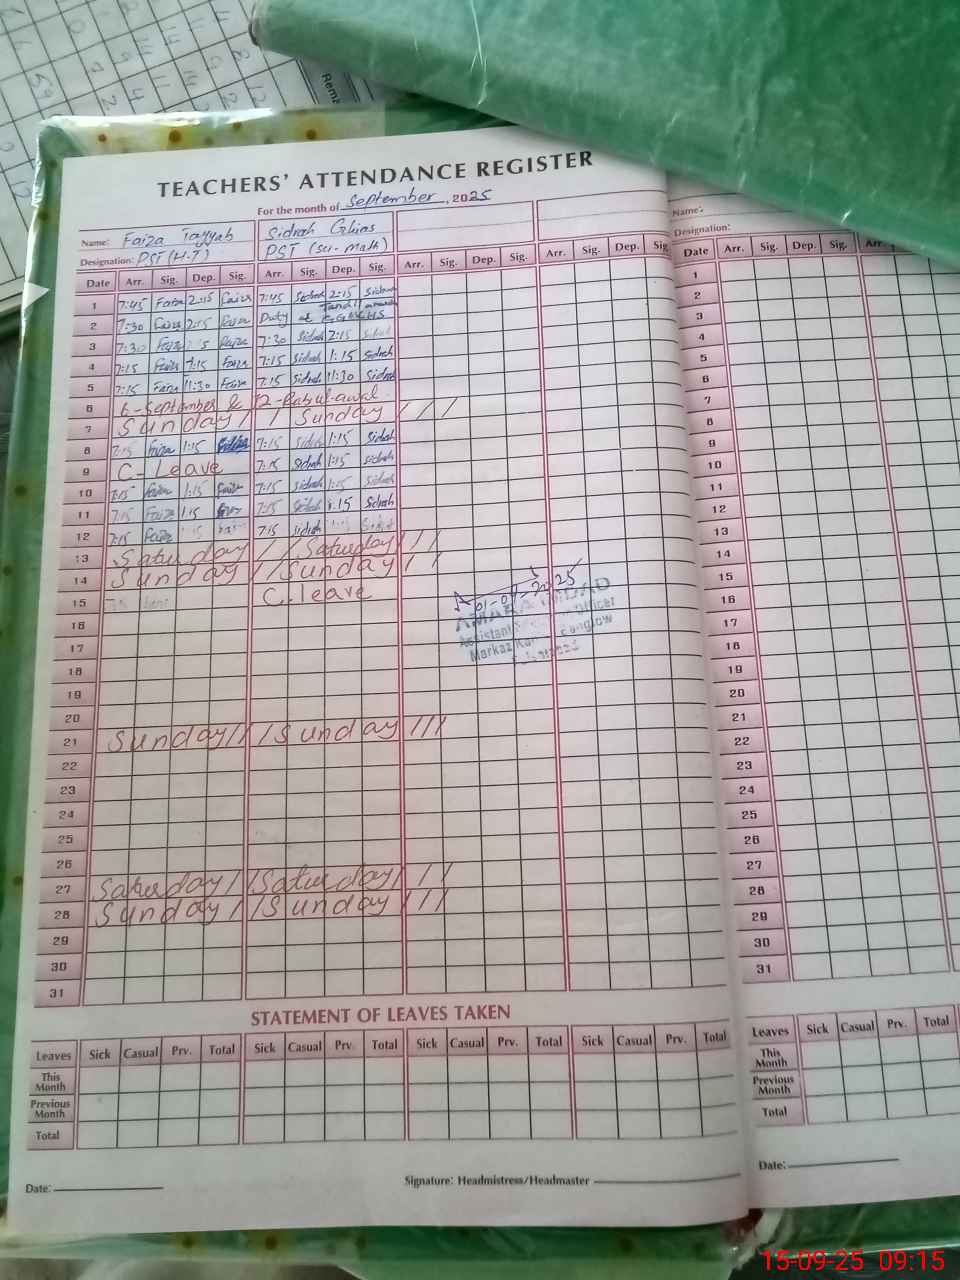 TEACHERS' ATTENDANCE REGISTER
For the month of September, 2025
Name: Faiza Tayyab Sidrah Ghias
Designation: PST (H.T) PST (Sci-math)
Date Arr. Sig. Dep. Sig. Arr. Sig. Dep. Sig. Arr. Sig. Dep. Sig. Arr. Sig. Dep. Sig.
1 7:45 Faiza 2:15 Faiza 7:45 Sidrah 2:15 Sidrah
2 7:30 Faiza 2:15 Faiza Duty at
3 7:30 Faiza Faiza 7:30 Sidrah 2:15 Sidrah
4 7:15 Faiza 1:15 Faiza 7:15 Sidrah 1:15 Sidrah
5 7:15 Faiza 11:30 Faiza 7:15 Sidrah 11:30 Sidrah
6 6-September & 12-Rabi-ul-awal
7 Sunday / / Sunday / / /
8 7:15 Faiza 1:15 7:15 Sidrah 1:15 Sidrah
9 C-Leave 7:15 Sidrah 1:15 Sidrah
10 7:15 Faiza 1:15 Faiza 7:15 Sidrah 1:15 Sidrah
11 7:15 Faiza 1:15 7:15 Sidrah 1:15 Sidrah
12 7:15 Faiza 7:15 Sidrah
13 Saturday / / Saturday / / /
14 Sunday / / Sunday / /
15 C.leave
16
17
18
19
20
21 Sunday / / / Sunday / / /
22
23
24
25
26
27 Saturday / / Saturday / / /
28 Sunday / / Sunday / / /
29
30
31
01-09-2025
Assistant Officer
Markaz
STATEMENT OF LEAVES TAKEN
Leaves Sick Casual Prv. Total Sick Casual Prv. Total Sick Casual Prv. Total Sick Casual Prv. Total
This Month
Previous Month
Total
Date:
Signature: Headmistress/Headmaster
Name:
Designation:
Date Arr. Sig. Dep. Sig. Arr.
1
2
3
4
5
6
7
8
9
10
11
12
13
14
15
16
17
18
19
20
21
22
23
24
25
26
27
28
29
30
31
Leaves Sick Casual Prv. Total
This Month
Previous Month
Total
Date:
15-09-25 09:15